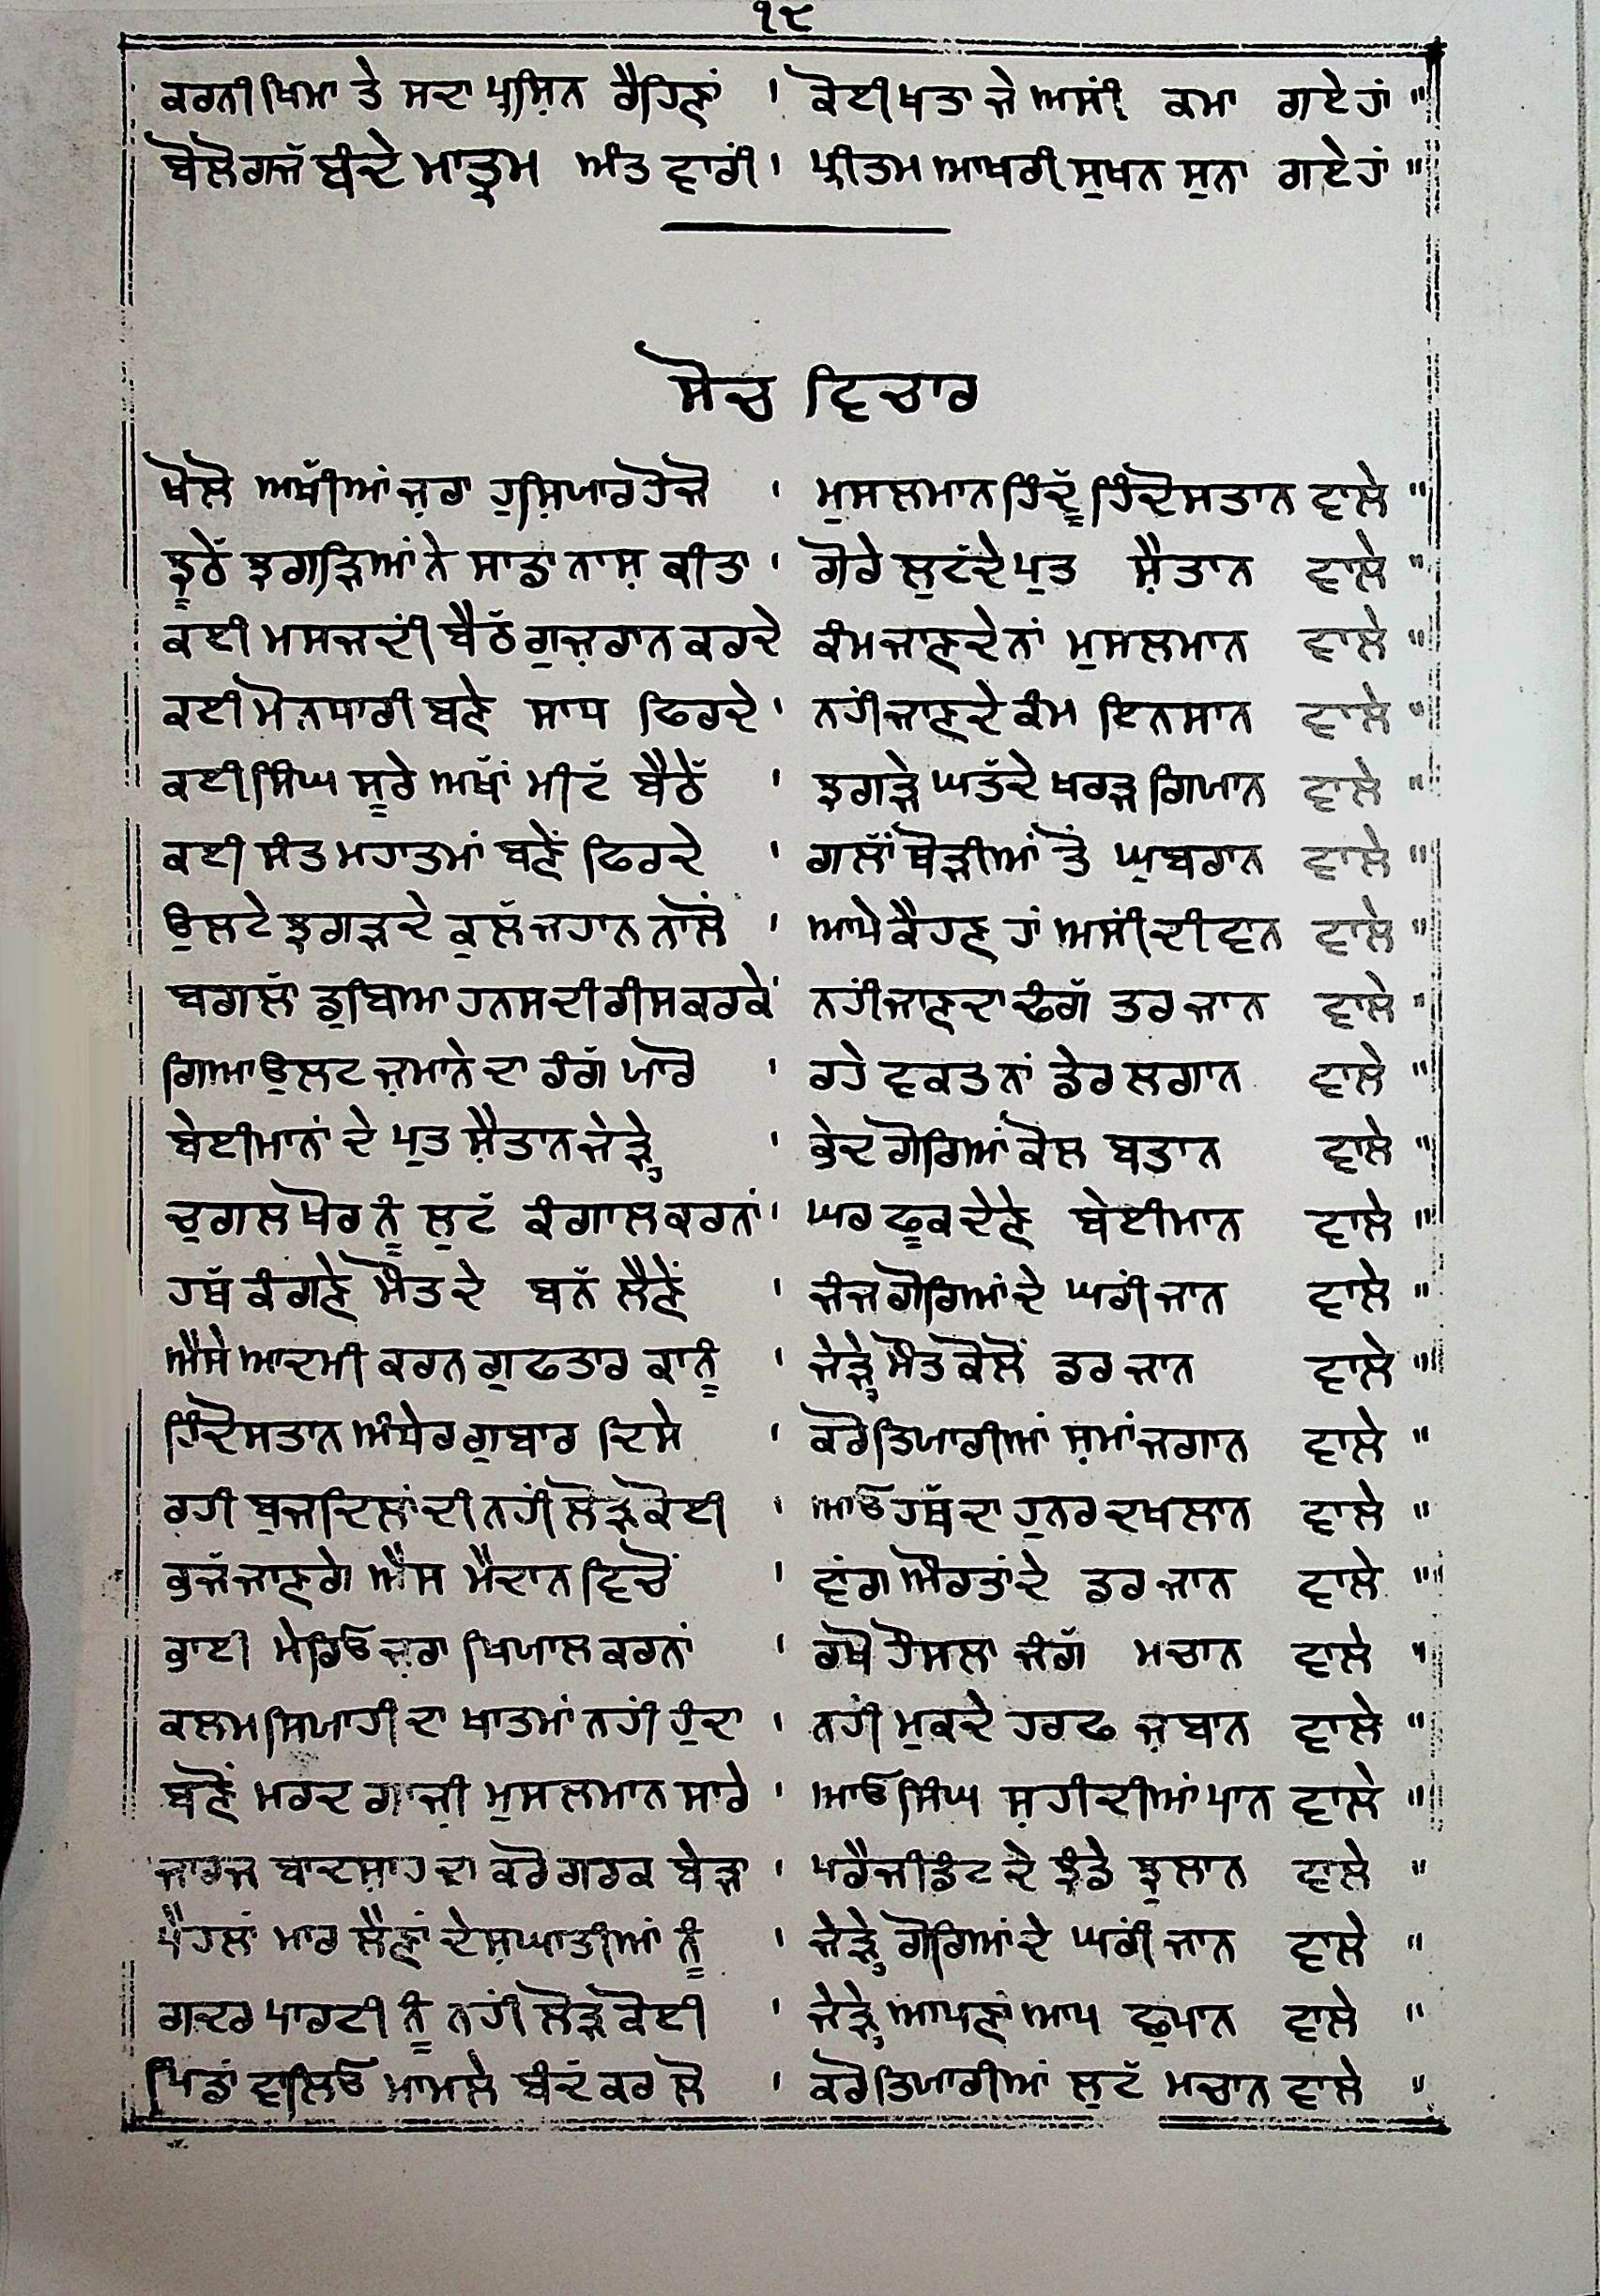 ੧੮
ਕਰਨੀ ਖਿਮਾ ਤੇ ਸਦਾ ਪ੍ਰਸਿੰਨ ਰੈਹਿਣਾਂ । ਕੋਈ ਖਤਾ ਜੇ ਅਸੀਂ ਕਮਾ ਗਏ ਹਾਂ ॥
ਬੋਲੋ ਗਜੱ ਬੰਦੇ ਮਾਤ੍ਰਮ ਅੰਤ ਵਾਰੀਂ । ਪ੍ਰੀਤਮ ਆਖਰੀ ਸੁਖਨ ਸੁਨਾ ਗਏ ਹਾਂ ॥
ਸੋਚ ਵਿਚਾਰ
ਖੋਲੋ ਅਖੀੱਆਂ ਜ਼ਰਾ ਹੁਸ਼ਿਯਾਰ ਹੋਜੋ । ਮੁਸਲਮਾਨ ਹਿੰਦੂੱ ਹਿੰਦੋਸਤਾਨ ਵਾਲੇ ॥
ਝੂਠੇਂ ਝਗੜਿਆਂ ਨੇ ਸਾਡਾ ਨਾਸ਼ ਕੀਤਾ । ਗੋਰੇ ਲੁਟੱਦੇ ਪੁਤ ਸ਼ੈਤਾਨ ਵਾਲੇ ॥
ਕਈ ਮਸਜਦੀਂ ਬੈਠੱ ਗੁਜ਼ਰਾਨ ਕਰਦੇ ਕੰਮ ਜਾਣਦੇ ਨਾਂ ਮੁਸਲਮਾਨ ਵਾਲੇ ॥
ਕਈ ਮੋਨਧਾਰੀ ਬਣੇ ਸਾਧ ਫਿਰਦੇ । ਨਹੀਂ ਜਾਣਦੇ ਕੰਮ ਇਨਸਾਨ ਵਾਲੇ ॥
ਕਈ ਸਿੰਘ ਸੂਰੇ ਅਖਾੱਂ ਮੀਟੱ ਬੈਠੇੱ । ਝਗੜੇ ਘਤੱਦੇ ਖਰੜ ਗਿਯਾਨ ਵਾਲੇ ॥
ਕਈ ਸੰਤ ਮਹਾਤਮਾਂ ਬਣੇਂ ਫਿਰਦੇ । ਗਲਾੱਂ ਥੋੜੀਆਂ ਤੋਂ ਘੁਬਰਾਨ ਵਾਲੇ ॥
ਉਲਟੇ ਝਗੜਦੇ ਕੁਲੱ ਜਹਾਨ ਨਾਲੋਂ । ਆਖੇ ਕੈਹਣ ਹਾਂ ਅਸੀਂ ਦੀਵਾਨ ਵਾਲੇ ॥
ਬਗਲਾ ਡੁਬਿਆ ਹਨਸ ਦੀ ਰੀਸ ਕਰਕੇ । ਨਹੀਂ ਜਾਣਦਾ ਢੰਗੱ ਤਰ ਜਾਨ ਵਾਲੇ ॥
ਗਿਆ ਉਲਟ ਜ਼ਮਾਨੇ ਦਾ ਰੰਗੱ ਯਾਰੋ । ਰਹੇ ਵਕਤ ਨਾਂ ਡੇਰ ਲਗਾਨ ਵਾਲੇ ॥
ਬੇਈਮਾਨਾਂ ਦੇ ਪੁਤ ਸ਼ੈਤਾਨ ਜੇੜ੍ਹੇ । ਭੇਦ ਗੋਰਿਆਂ ਕੋਲ ਬਤਾਨ ਵਾਲੇ ॥
ਚੁਗਲ ਖੋਰ ਨੂੰ ਲੁਟੱ ਕੰਗਾਲ ਕਰਨਾਂ । ਘਰ ਫੂਕ ਦੇਣੇ ਬੇਈਮਾਨ ਵਾਲੇ ॥
ਹਥੱ ਕੰਗਣੇ ਮੌਤ ਦੇ ਬਨੱ ਲੈਣੇਂ । ਜੰਜ ਗੋਰਿਆਂ ਦੇ ਘਰੀਂ ਜਾਨ ਵਾਲੇ ॥
ਐਸੇ ਆਦਮੀ ਕਰਨ ਗੁਫਤਾਰ ਕਾਨੂੰ । ਜੇੜ੍ਹੇ ਮੌਤ ਕੋਲੋਂ ਡਰ ਜਾਨ ਵਾਲੇ ॥
ਹਿੰਦੋਸਤਾਨ ਅੰਧੇਰ ਗੁਬਾਰ ਦਿਸੇ । ਕਰੋ ਤਿਯਾਰੀਆਂ ਸ਼ਮਾਂ ਜਗਾਨ ਵਾਲੇ ॥
ਰਹੀ ਬੁਜ਼ਦਿਲਾਂ ਦੀ ਨਹੀਂ ਲੋੜ ਕੋਈ । ਆਓ ਹਥੱ ਦਾ ਹੁਨਰ ਦਖਲਾਨ ਵਾਲੇ ॥
ਭੁਜੱ ਜਾਣਗੇ ਐਸ ਮੈਦਾਨ ਵਿਚੋਂ । ਵਾਂਗ ਔਰਤਾਂ ਦੇ ਡਰ ਜਾਨ ਵਾਲੇ ॥
ਭਾਈ ਮੇਰਿਓ ਜ਼ਰਾ ਖਿਯਾਲ ਕਰਨਾਂ । ਰਖੋ ਹੌਸਲਾ ਜੰਗੱ ਮਚਾਨ ਵਾਲੇ ॥
ਕਲਮ ਸਿਯਾਹੀ ਦਾ ਖਾਤਮਾਂ ਨਹੀਂ ਹੁੰਦਾ । ਨਹੀਂ ਮੁਕਦੇ ਹਰਫ ਜ਼ਬਾਨ ਵਾਲੇ ॥
ਬਣੋਂ ਮਰਦ ਗਾਜ਼ੀ ਮੁਸਲਮਾਨ ਸਾਰੇ । ਆਓ ਸਿੰਘ ਸ਼ਹੀਦੀਆਂ ਪਾਨ ਵਾਲੇ ॥
ਜਾਰਜ ਬਾਦਸ਼ਾਹ ਦਾ ਕਰੋ ਗਰਕ ਬੇੜਾ । ਪਰੈਜੀਡੰਟ ਦੇ ਝੰਡੇ ਝੁਲਾਨ ਵਾਲੇ ॥
ਪੈਹਲਾਂ ਮਾਰ ਲੈਣਾਂ ਦੇਸ਼ਘਾਤੀਆਂ ਨੂੰ । ਜੇੜ੍ਹੇ ਗੋਰਿਆਂ ਦੇ ਘਰੀਂ ਜਾਨ ਵਾਲੇ ॥
ਗਦਰ ਪਾਰਟੀ ਨੂੰ ਨਹੀਂ ਲੋੜ ਕੋਈ । ਜੇੜ੍ਹੇ ਆਪਣਾਂ ਆਪ ਛੁਪਾਨ ਵਾਲੇ ॥
ਪਿੰਡਾਂ ਵਾਲਿਓ ਮਾਮਲੇ ਬੰਦੱ ਕਰ ਲੋ । ਕਰੋ ਤਿਯਾਰੀਆਂ ਲੁਟੱ ਮਚਾਨ ਵਾਲੇ ॥